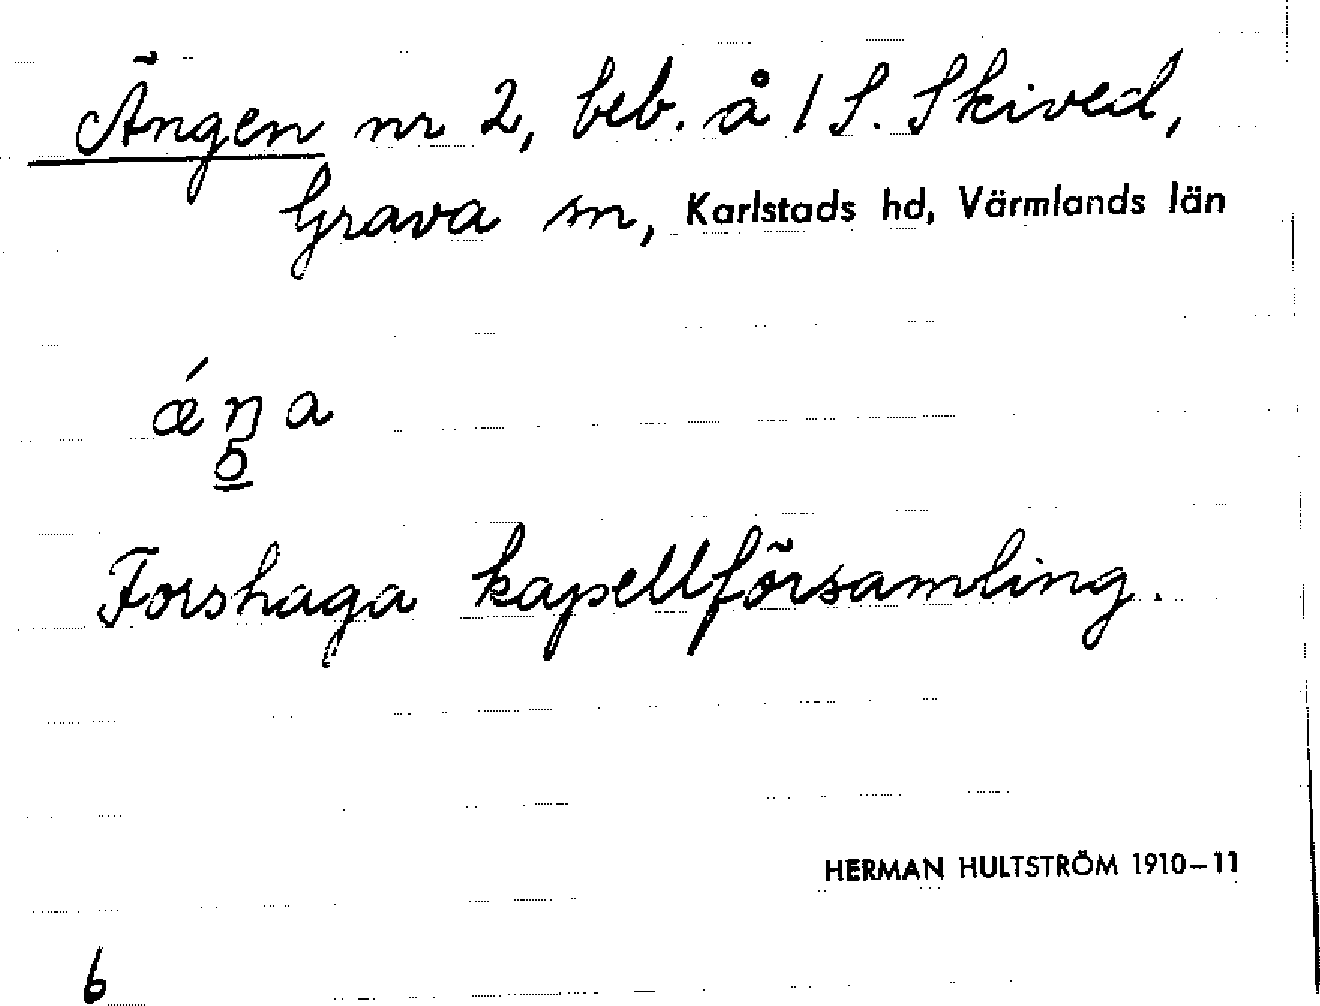 Ängen nr 2, beb. å 1 S. Skived,
Grava sn, Karlstads hd, Värmlands län
ǽŋa
5
Forshaga kapellförsamling.
HERMAN HULTSTRÖM 1910–11
6